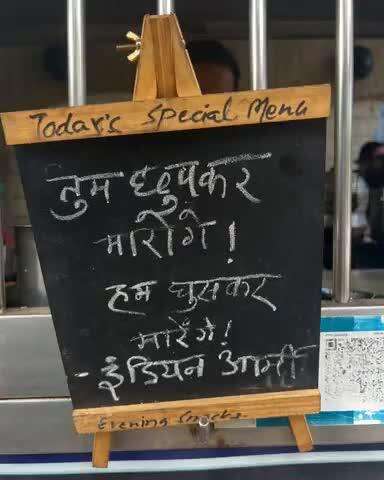 Today's Special Menu
तुम छुपकर
मारोगे!
हम घुसकर
मारेंगे!
- इंडियन आर्मी
Evening Snacks.